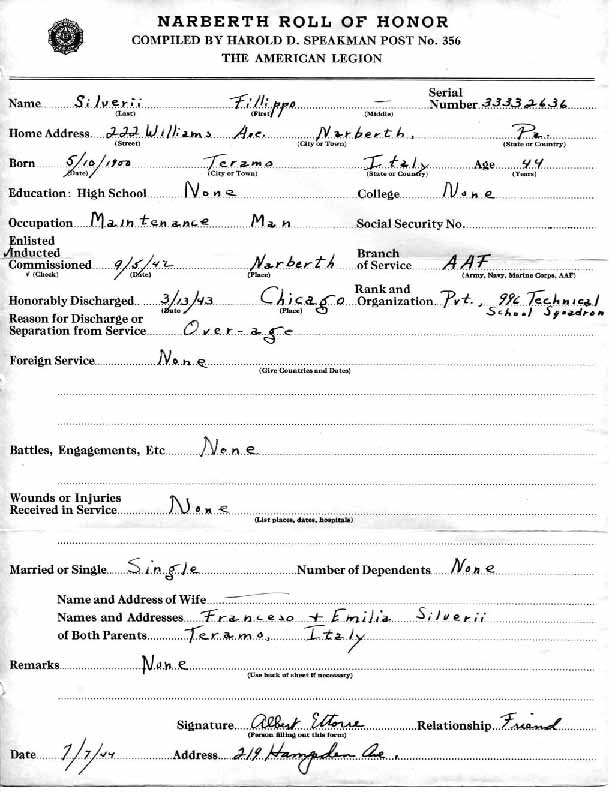 NARBERTH ROLL OF HONOR
COMPILED BY HAROLD D. SPEAKMAN POST No. 356
THE AMERICAN LEGION
Name Silverii Fillippo — Serial Number 33332636
(Last) (First) (Middle)
Home Address 222 Williams Ave. Narberth, Pa.
(Street) (City or Town) (State or Country)
Born 5/10/1900 Teramo Italy Age 44
(Date) (City or Town) (State or Country) (Years)
Education: High School None College None
Occupation Maintenance Man Social Security No.
Enlisted
Inducted
Commissioned 9/5/42 Narberth Branch of Service AAF
√ (Check) (Date) (Place) (Army, Navy, Marine Corps, AAF)
Honorably Discharged 3/13/43 Chicago Rank and Organization Pvt., 996 Technical
(Date) (Place) School Sqadron
Reason for Discharge or
Separation from Service Over-age
Foreign Service None
(Give Countries and Dates)
Battles, Engagements, Etc None
Wounds or Injuries
Received in Service None
(List places, dates, hospitals)
Married or Single Single Number of Dependents None
Name and Address of Wife —
Names and Addresses Franceso + Emilia Silverii
of Both Parents Teramo, Italy
Remarks None
(Use back of sheet if necessary)
Signature Albert Ettorre Relationship Friend
(Person filling out this form)
Date 7/7/44 Address 219 Hampden Ave.